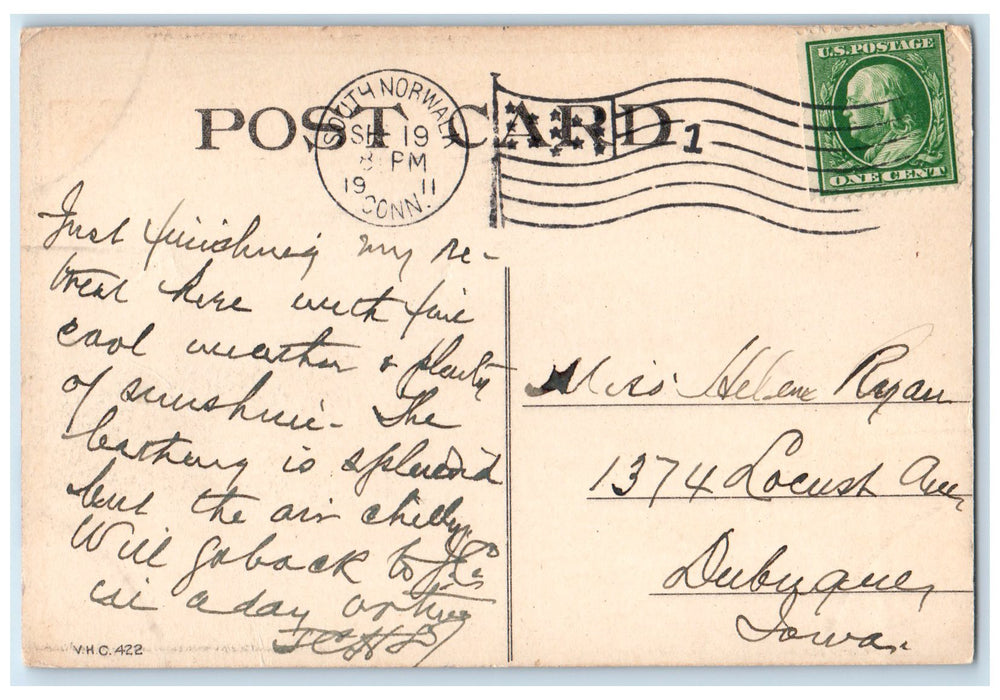 POST CARD
SOUTH NORWALK
SEP 19
8 PM
19 11
CONN.
1
U.S. POSTAGE
ONE CENT
Just finishing my re-
treat here with fine
cool weather & plenty
of sunshine - The
bathing is splendid
but the air chilly.
Will go back to
in a day or two
Miss Helene Ryan
1374 Locust Ave,
Dubuque,
Iowa.
V.H.C. 422